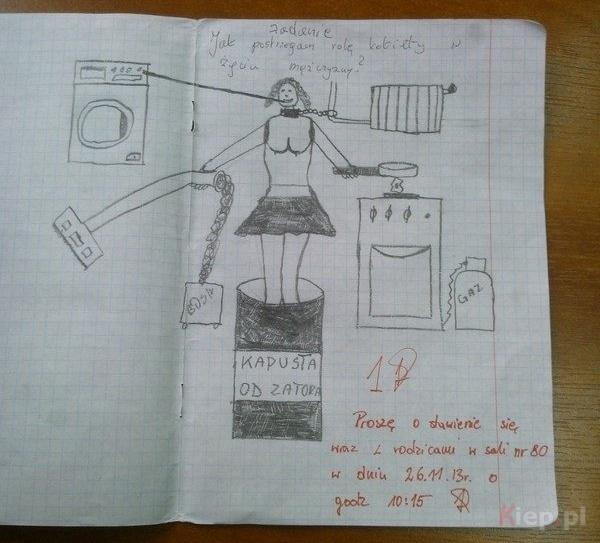 zadanie
Jak postrzegam rolę kobiety w
życiu mężczyzny?
BOSH
GAZ
KAPUSTA
OD ZATORA
1
Proszę o stawienie się
wraz z rodzicami w sali nr 80
w dniu 26.11.13r. o
godz 10:15
Kiep.pl